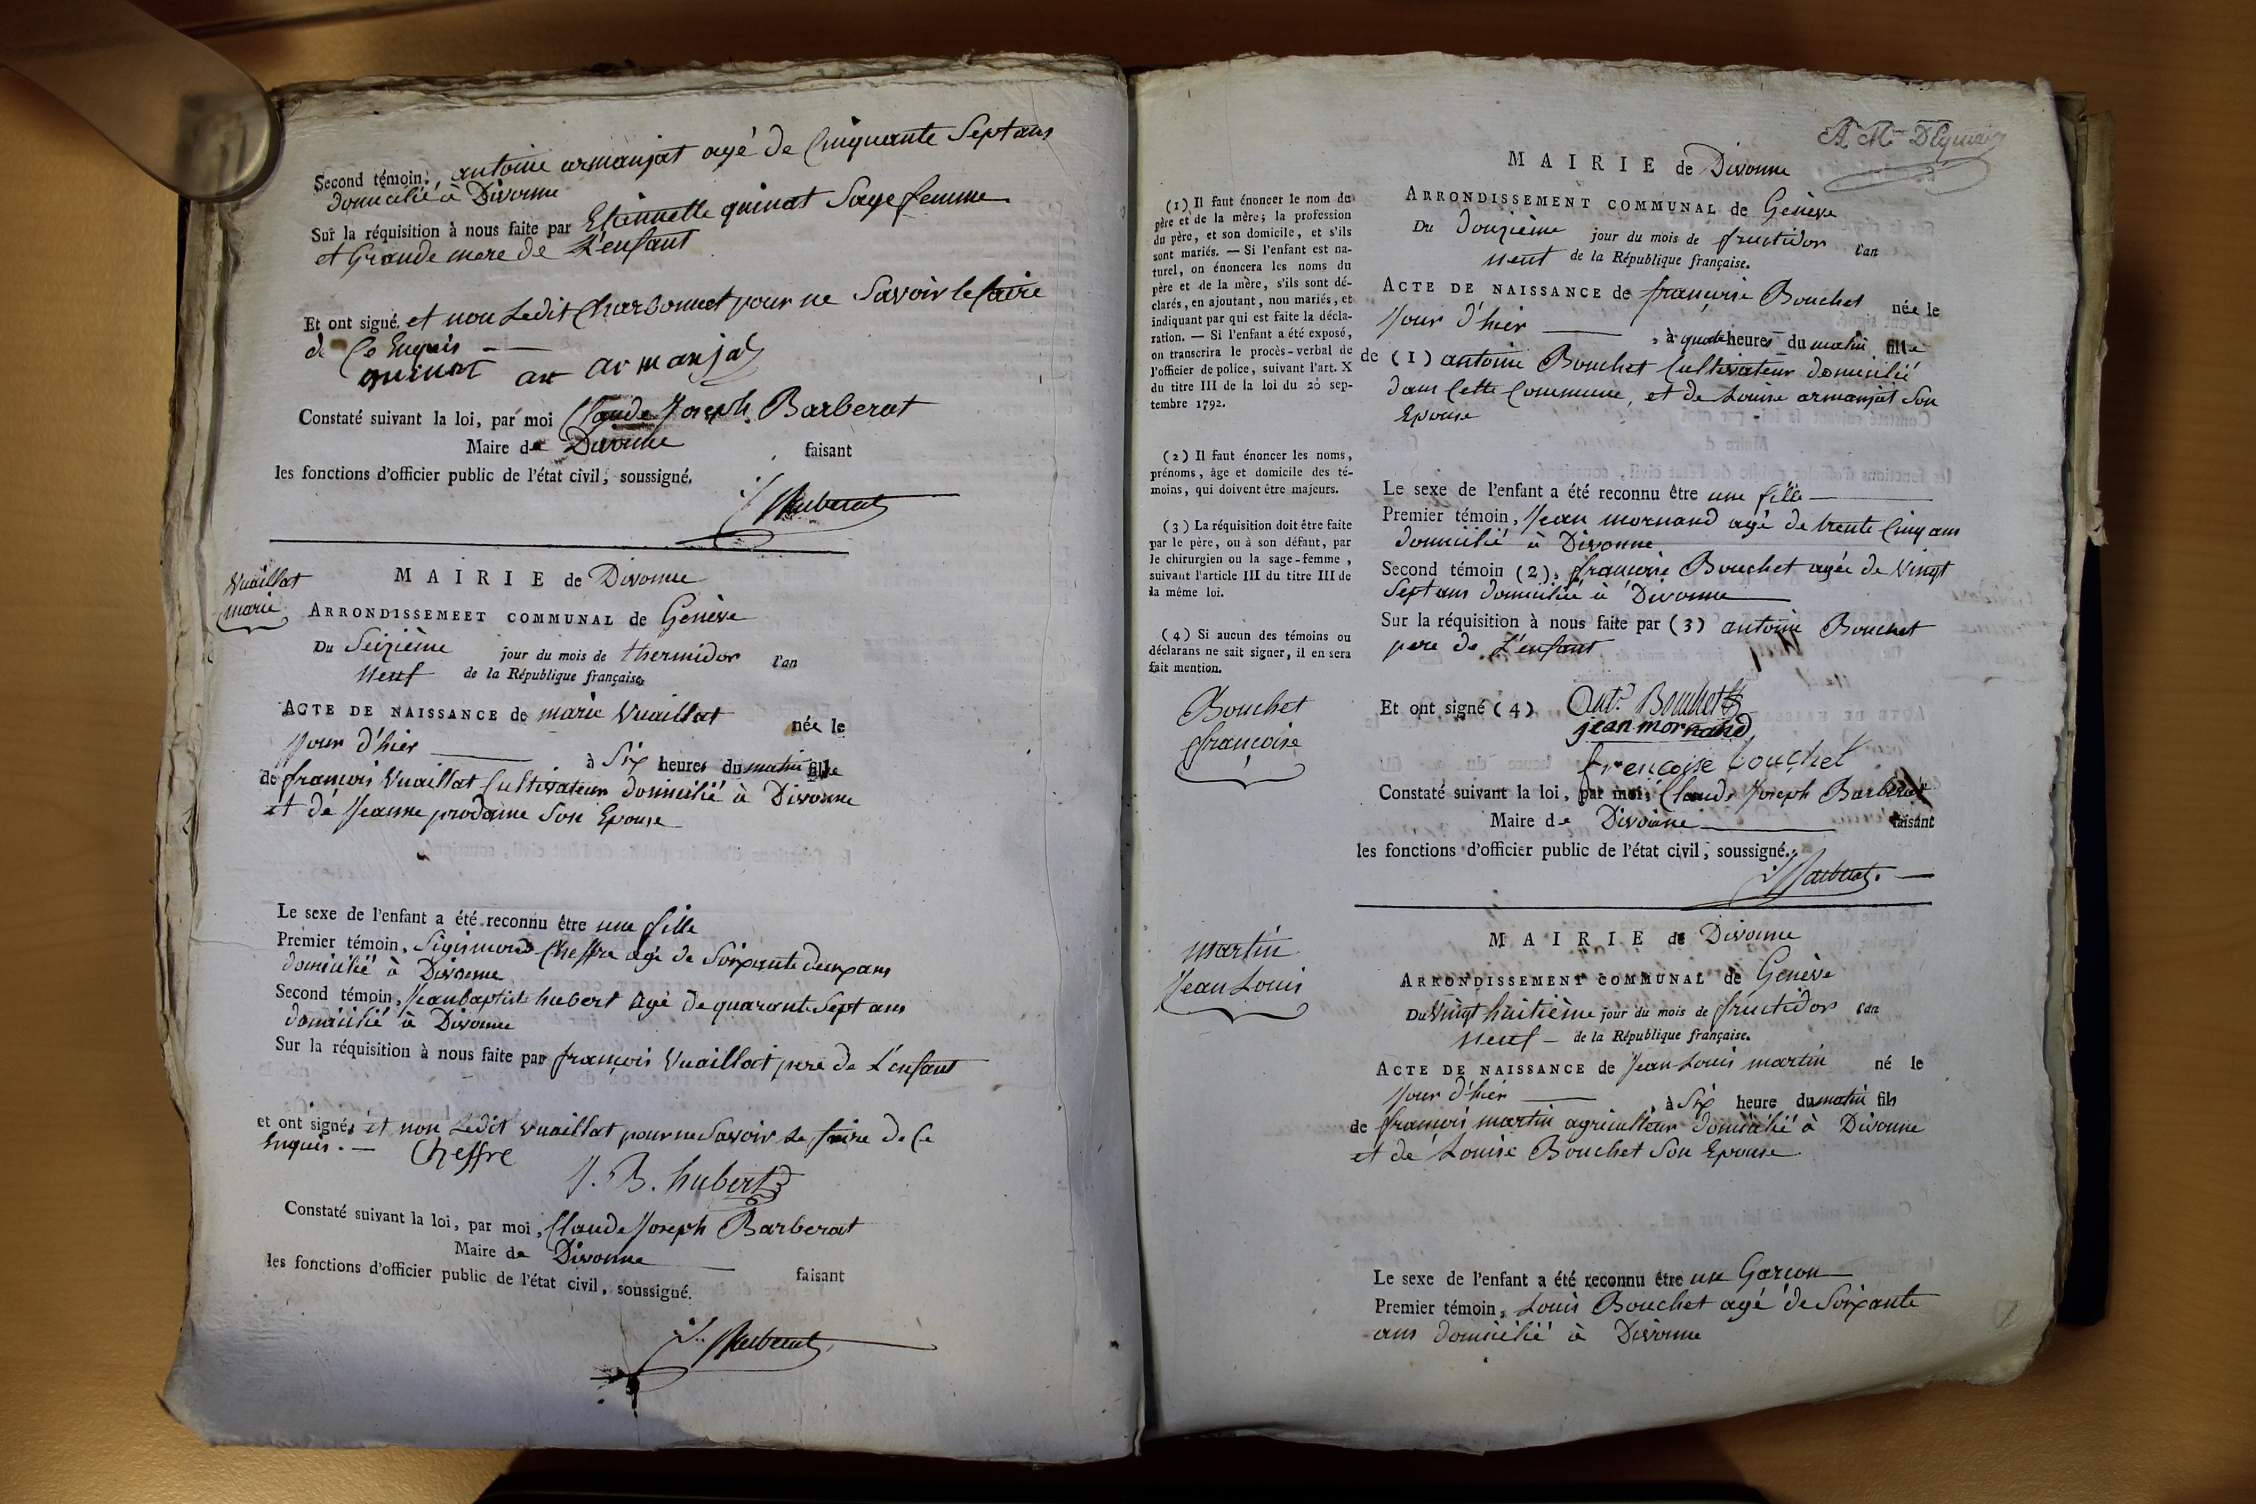 Second témoin, antoine armanjat agé de Cinquante Sept ans
domicilié à Divonne
Sur la réquisition à nous faite par Etiennette quinat Sage femme
et Grande mere de L'enfant
Et ont signé et non Ledit Charbonnet pour ne Savoir le faire
de Ce Enquis
quinat ant armanjat
Constaté suivant la loi, par moi Claude Joseph Barberat
Maire de Divonne faisant
les fonctions d'officier public de l'état civil, soussigné.
Barberat
Vuaillat
marie
MAIRIE de Divonne
ARRONDISSEMEET COMMUNAL de Genève
Du Seizième jour du mois de thermidor l'an
Neuf de la République française.
ACTE DE NAISSANCE de marie Vuaillat née le
Jour d'hier à Six heures du matin fille
de françois Vuaillat Cultivateur domicilié à Divonne
et de Jeanne prodame Son Epouse
Le sexe de l'enfant a été reconnu être une fille
Premier témoin, Sigismond Cheffre agé de Soixante deux ans
domicilié à Divonne
Second témoin, Jean baptiste hubert agé de quarante Sept ans
domicilié à Divonne
Sur la réquisition à nous faite par françois Vuaillat pere de L'enfant
et ont signé, et non Ledit Vuaillat pour ne Savoir Le faire de Ce
Enquis. — Cheffre
J. B. hubert
Constaté suivant la loi, par moi, Claude Joseph Barberat
Maire de Divonne
faisant
les fonctions d'officier public de l'état civil, soussigné.
Barberat
MAIRIE de Divonne
ARRONDISSEMENT COMMUNAL de Genève
Du Douzième jour du mois de fructidor l'an
Neuf de la République française.
ACTE DE NAISSANCE de françoise Bouchet née le
Jour d'hier, à quatre heures du matin fille
de (1) antoine Bouchet Cultivateur domicilié
dans Cette Commune, et de Louise armanjat Son
Epouse
Le sexe de l'enfant a été reconnu être une fille
Premier témoin, Jean mornand agé de trente Cinq ans
domicilié à Divonne
Second témoin (2), françoise Bouchet agée de Vingt
Sept ans domiciliée à Divonne
Sur la réquisition à nous faite par (3) antoine Bouchet
pere de L'enfant
Et ont signé (4) Ant.e Bouchet
jean mornand
frencoise bouchet
Constaté suivant la loi, par moi, Claude Joseph Barberat
Maire de Divonne faisant
les fonctions d'officier public de l'état civil, soussigné.
Barberat
(1) Il faut énoncer le nom du
père et de la mère; la profession
du père, et son domicile, et s'ils
sont mariés. — Si l'enfant est na-
turel, on énoncera les noms du
père et de la mère, s'ils sont dé-
clarés, en ajoutant, non mariés, et
indiquant par qui est faite la décla-
ration. — Si l'enfant a été exposé,
on transcrira le procès-verbal de
l'officier de police, suivant l'art. X
du titre III de la loi du 20 sep-
tembre 1792.
(2) Il faut énoncer les noms,
prénoms, âge et domicile des té-
moins, qui doivent être majeurs.
(3) La réquisition doit être faite
par le père, ou à son défaut, par
le chirurgien ou la sage-femme,
suivant l'article III du titre III de
la même loi.
(4) Si aucun des témoins ou
déclarans ne sait signer, il en sera
fait mention.
Bouchet
françoise
martin
Jean Louis
MAIRIE de Divonne
ARRONDISSEMENT COMMUNAL de Genève
Du Vingt huitième jour du mois de fructidor l'an
Neuf de la République française.
ACTE DE NAISSANCE de Jean Louis martin né le
Jour d'hier, à Six heure du matin fils
de françois martin agriculteur domicilié à Divonne
et de Louise Bouchet Son Epouse
Le sexe de l'enfant a été reconnu être un Garcon
Premier témoin, Louis Bouchet agé de Soixante
ans domicilié à Divonne